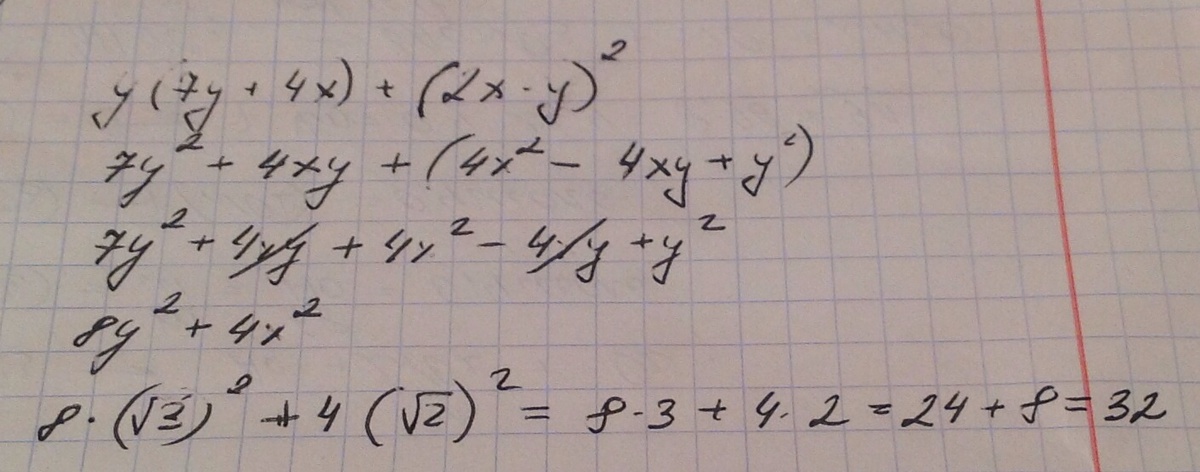 y(7y + 4x) + (2x - y)²
7y² + 4xy + (4x² - 4xy + y²)
7y² + 4xy + 4x² - 4xy + y²
8y² + 4x²
8·(√3)² + 4(√2)² = 8·3 + 4·2 = 24 + 8 = 32